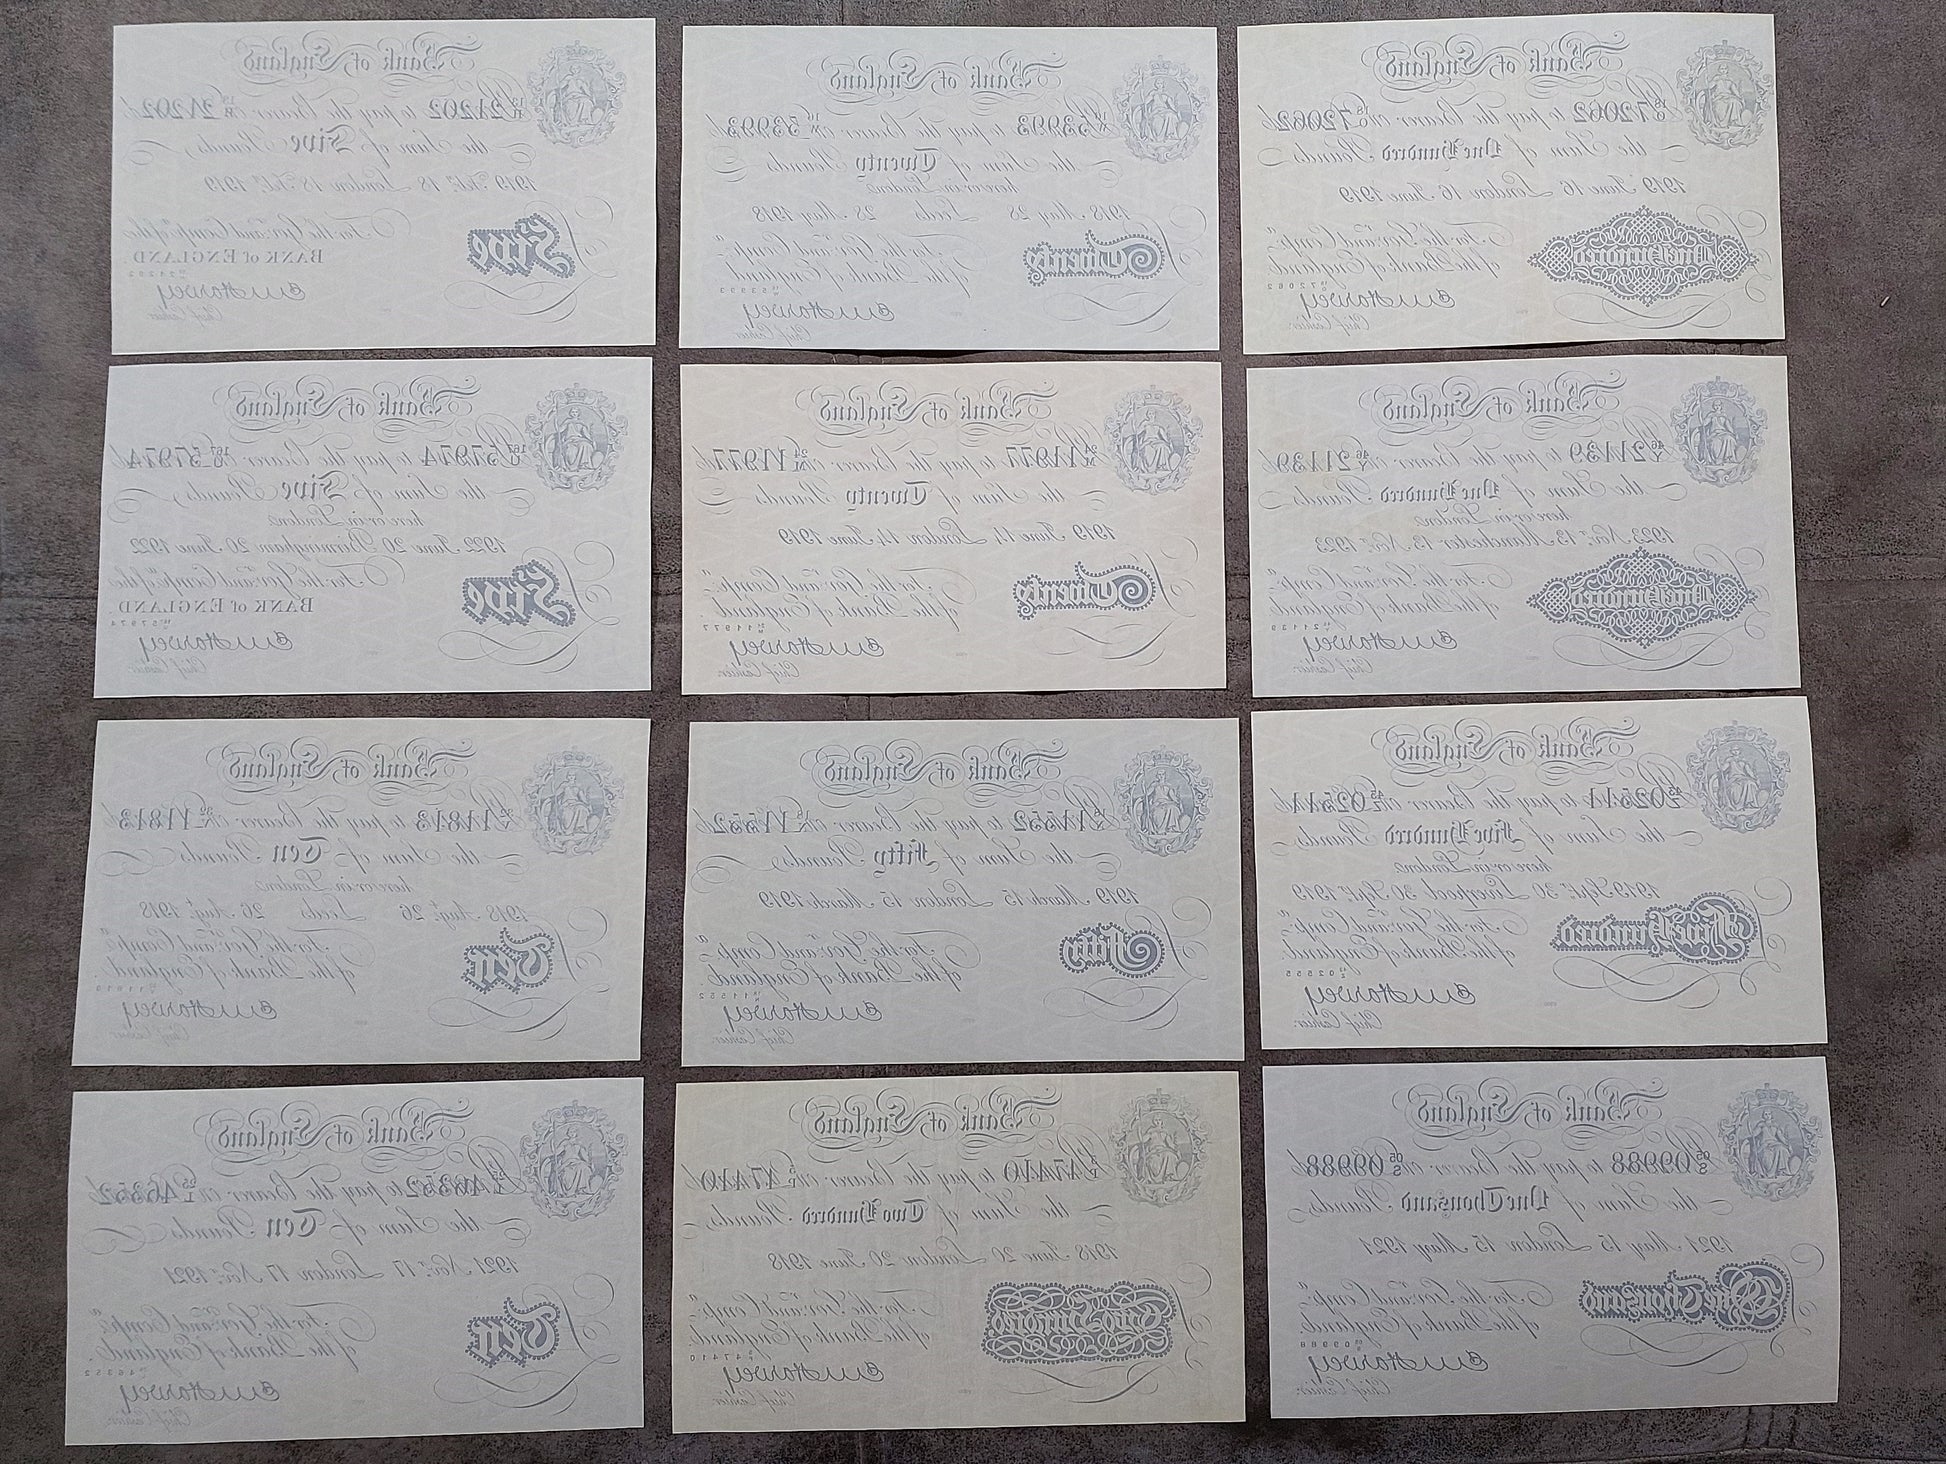 Bank of England
21202 to pay the Bearer on 21202
the Sum of Five Pounds
1919 Feby. 18 London 18 Feby. 1919
For the Govr. and Compa. of the
BANK of ENGLAND.
Five
21202
E M Harvey
Chief Cashier.
Bank of England
53993 to pay the Bearer on 53993
the Sum of Twenty Pounds
here or in London
1918 May 28 Leeds 28 May 1918
For the Govr. and Compa.
of the Bank of England.
Twenty
53993
E M Harvey
Chief Cashier.
Bank of England
72062 to pay the Bearer on 72062
the Sum of One Hundred Pounds
1919 June 16 London 16 June 1919
For the Govr. and Compa.
of the Bank of England.
One Hundred
72062
E M Harvey
Chief Cashier.
Bank of England
57974 to pay the Bearer on 57974
the Sum of Five Pounds
here or in London
1922 June 20 Birmingham 20 June 1922
For the Govr. and Compa. of the
BANK of ENGLAND.
Five
57974
E M Harvey
Chief Cashier.
Bank of England
11977 to pay the Bearer on 11977
the Sum of Twenty Pounds
1919 June 14 London 14 June 1919
For the Govr. and Compa.
of the Bank of England.
Twenty
11977
E M Harvey
Chief Cashier.
Bank of England
21139 to pay the Bearer on 21139
the Sum of One Hundred Pounds
here or in London
1923 Novr. 13 Manchester 13 Novr. 1923
For the Govr. and Compa.
of the Bank of England.
One Hundred
21139
E M Harvey
Chief Cashier.
Bank of England
11813 to pay the Bearer on 11813
the Sum of Ten Pounds
here or in London
1918 Augt. 26 Leeds 26 Augt. 1918
For the Govr. and Compa.
of the Bank of England.
Ten
E M Harvey
Chief Cashier.
Bank of England
11552 to pay the Bearer on 11552
the Sum of Fifty Pounds
1919 March 15 London 15 March 1919
For the Govr. and Compa.
of the Bank of England.
Fifty
11552
E M Harvey
Chief Cashier.
Bank of England
to pay the Bearer on
the Sum of Five Hundred Pounds
here or in London
1919 Sept. 30 Liverpool 30 Sept. 1919
For the Govr. and Compa.
of the Bank of England.
Five Hundred
E M Harvey
Chief Cashier.
Bank of England
46352 to pay the Bearer on 46352
the Sum of Ten Pounds
1921 Novr. 17 London 17 Novr. 1921
For the Govr. and Compa.
of the Bank of England.
Ten
46352
E M Harvey
Chief Cashier.
Bank of England
47410 to pay the Bearer on 47410
the Sum of Two Hundred Pounds
1918 June 20 London 20 June 1918
For the Govr. and Compa.
of the Bank of England.
Two Hundred
47410
E M Harvey
Chief Cashier.
Bank of England
09988 to pay the Bearer on 09988
the Sum of One Thousand Pounds
1921 May 15 London 15 May 1921
For the Govr. and Compa.
of the Bank of England.
One Thousand
09988
E M Harvey
Chief Cashier.